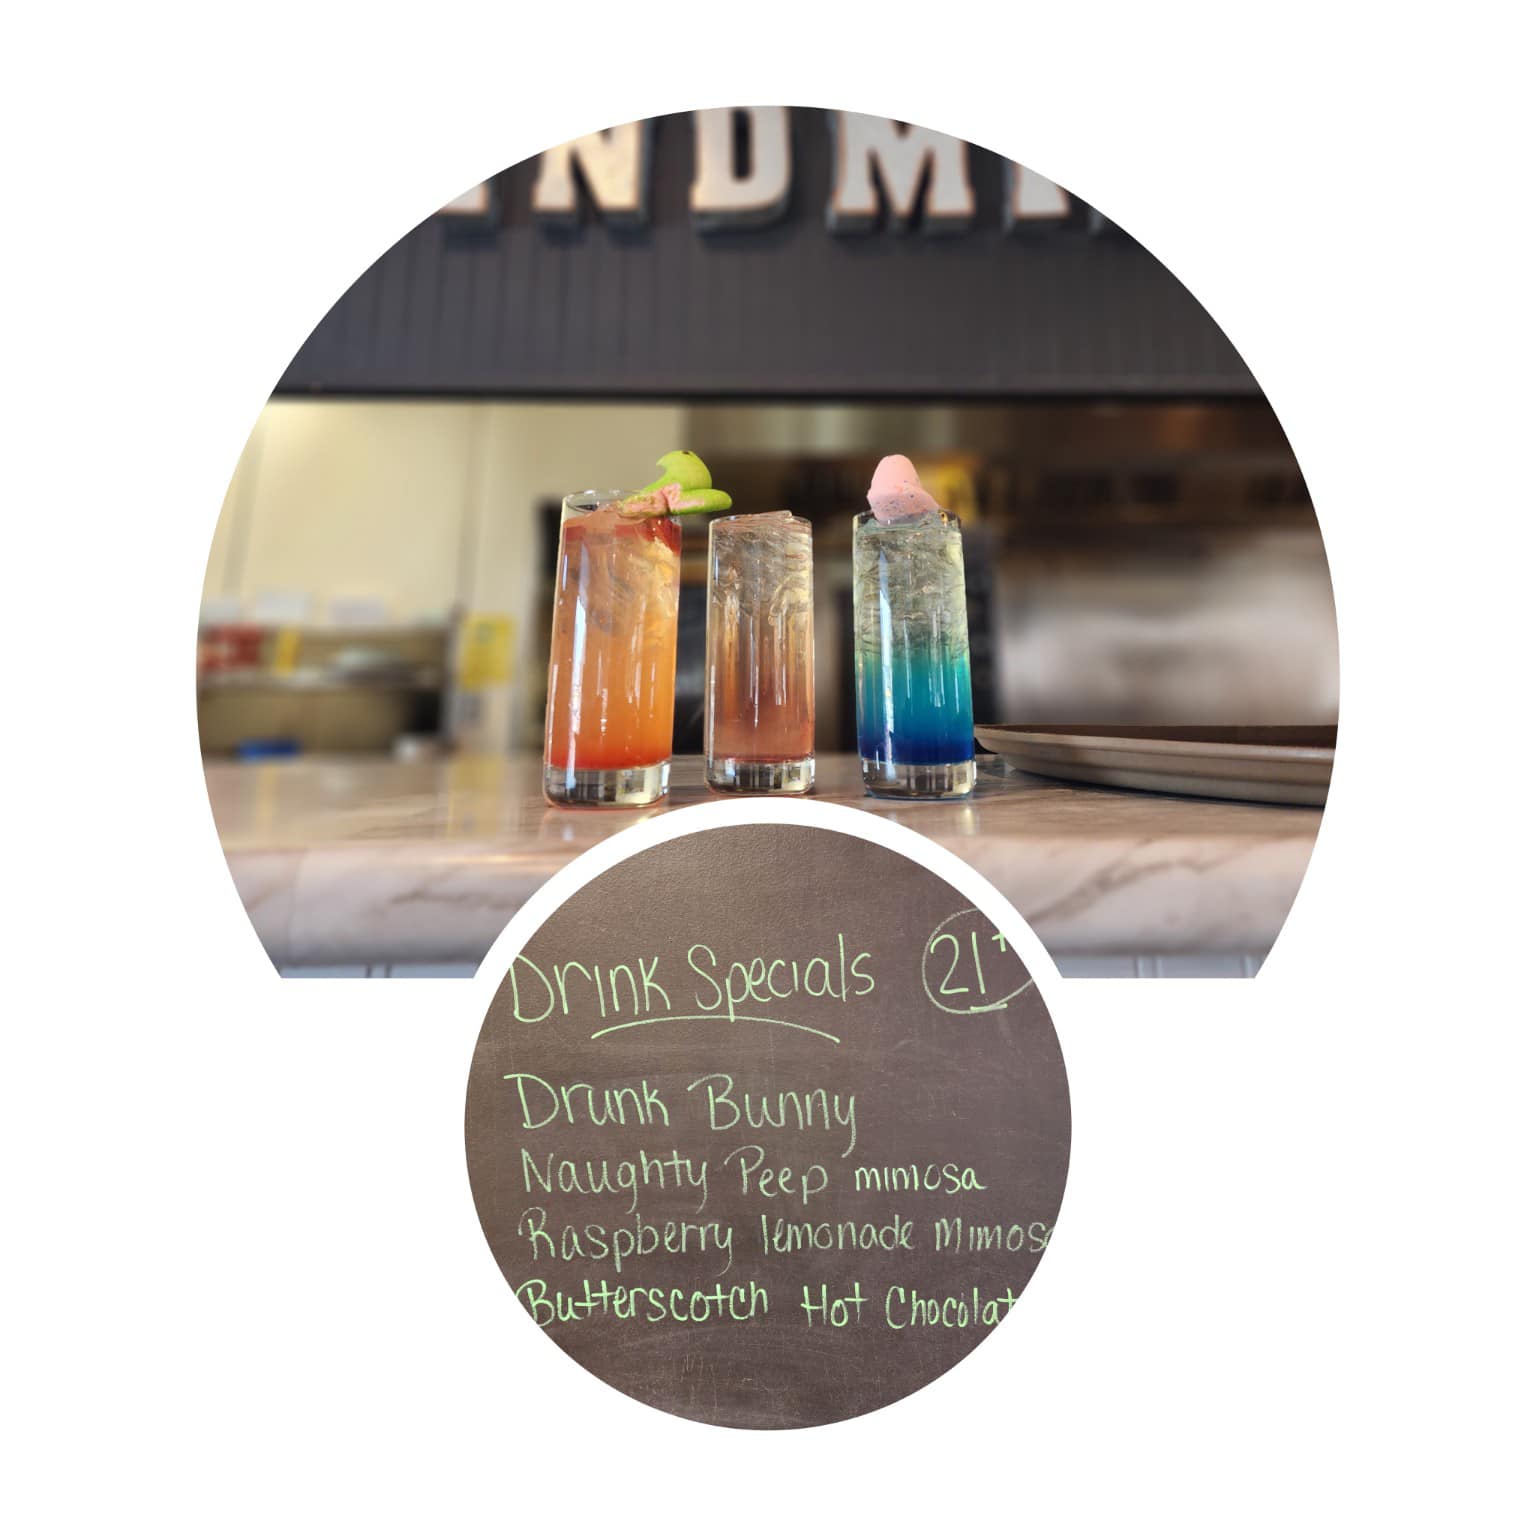 NDM
Drink Specials 21+
Drunk Bunny
Naughty Peep mimosa
Raspberry lemonade Mimosa
Butterscotch Hot Chocolat